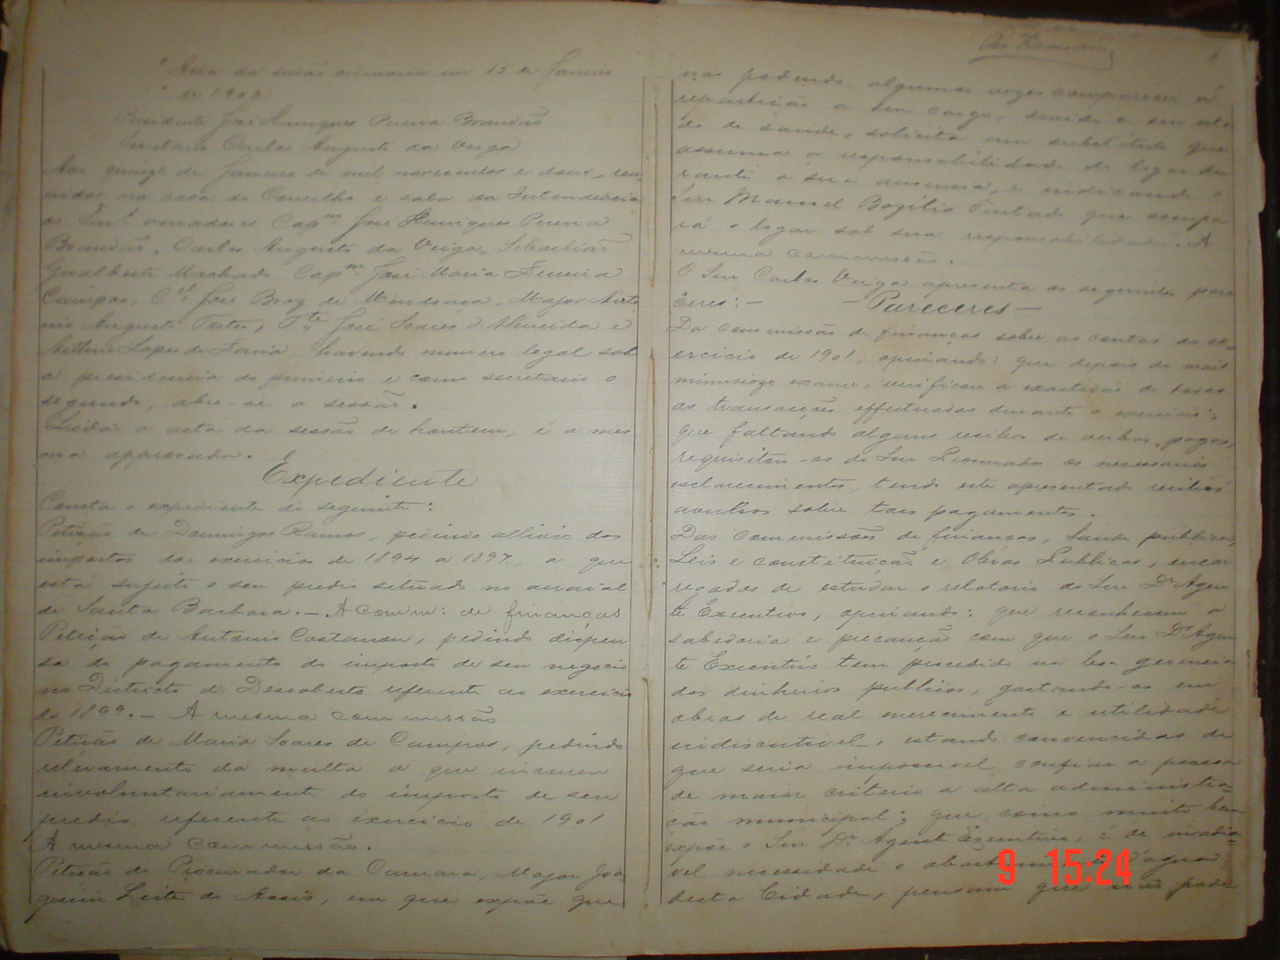 Acta da sessão ordinaria em 15 de Janeiro
de 1902
Presidente José Henriques Pereira Brandão
Secretario Carlos Augusto da Veiga
Aos quinze de Janeiro de mil novecentos e dous, reu
nidos na casa do Conselho e sala da Intendencia
os Snrs. vereadores Capm José Henriques Pereira
Brandão, Carlos Augusto da Veiga, Sebastião
Gualberto Machado, Capm José Maria Ferreira
Campos, Cel José Braz de Mendonça, Major Anto
nio Augusto Tortes, Tte José Soares d'Almeida e
Arthur Lopes de Faria, havendo numero legal sob
a presidencia do primeiro e como secretario o
segundo, abre-se a sessão.
Lida a acta da sessão de hontem, é a mes
ma approvada.
Expediente
Consta o expediente do seguinte:
Petição de Domingos Ramos, pedindo allivio dos
impostos dos exercicios de 1894 a 1897, a que
está sujeito o seu predio situado no arraial
de Santa Barbara. — A comm: de finanças
Petição de Antonio Castanon, pedindo dispen
sa do pagamento do imposto de seu negocio
no Districto do Descoberto referente ao exercicio
de 1899. — A mesma commissão
Petição de Maria Soares de Campos, pedindo
relevamento da multa a que incorreu
involuntariamente do imposto de seu
predio referente ao exercicio de 1901
A mesma commissão.
Petição do Procurador da Camara, Major Joa
quim Leite de Assis, em que expõe que
não podendo algumas vezes comparecer á
repartição a seu cargo, devido a seu esta
do de saude, solicita um substituto que
assuma a responsabilidade do logar du
rante a sua ausencia, e indicando o
Snr Manoel Bazilio Furtado que occupa
rá o logar sob sua responsabilidade. A
mesma commissão.
O Snr Carlos Veiga apresenta os seguintes pare
ceres: — — Pareceres —
Da commissão de finanças sobre as contas do ex
ercicio de 1901, opinando: que depois do mais
minucioso exame, verificou a exactidão de todas
as transacções effectuadas durante o exercicio;
que faltando alguns recibos de verbas pagas,
requisitou-os do Snr Procurador os necessarios
esclarecimentos, tendo este apresentado recibos
avulsos sobre tais pagamentos.
Das commissões de finanças, Saude publica,
Leis e constituição e Obras Publicas, encar
regadas de estudar o relatorio do Snr Dr Agen
te Executivo, opinando: que reconhecem a
sabedoria e precaução com que o Snr Dr Agen
te Executivo tem procedido na boa gerencia
dos dinheiros publicos, gastando-os em
obras de real merecimento e utilidade
indiscutivel, estando convencidas de
que seria impossivel confiar a pessoa
de maior criterio a alta administra
ção municipal; que como muito bem
expõe o Snr Dr Agente Executivo, é de
vel necessidade o d'agua
desta Cidade, pensam que não pode
9 15:24